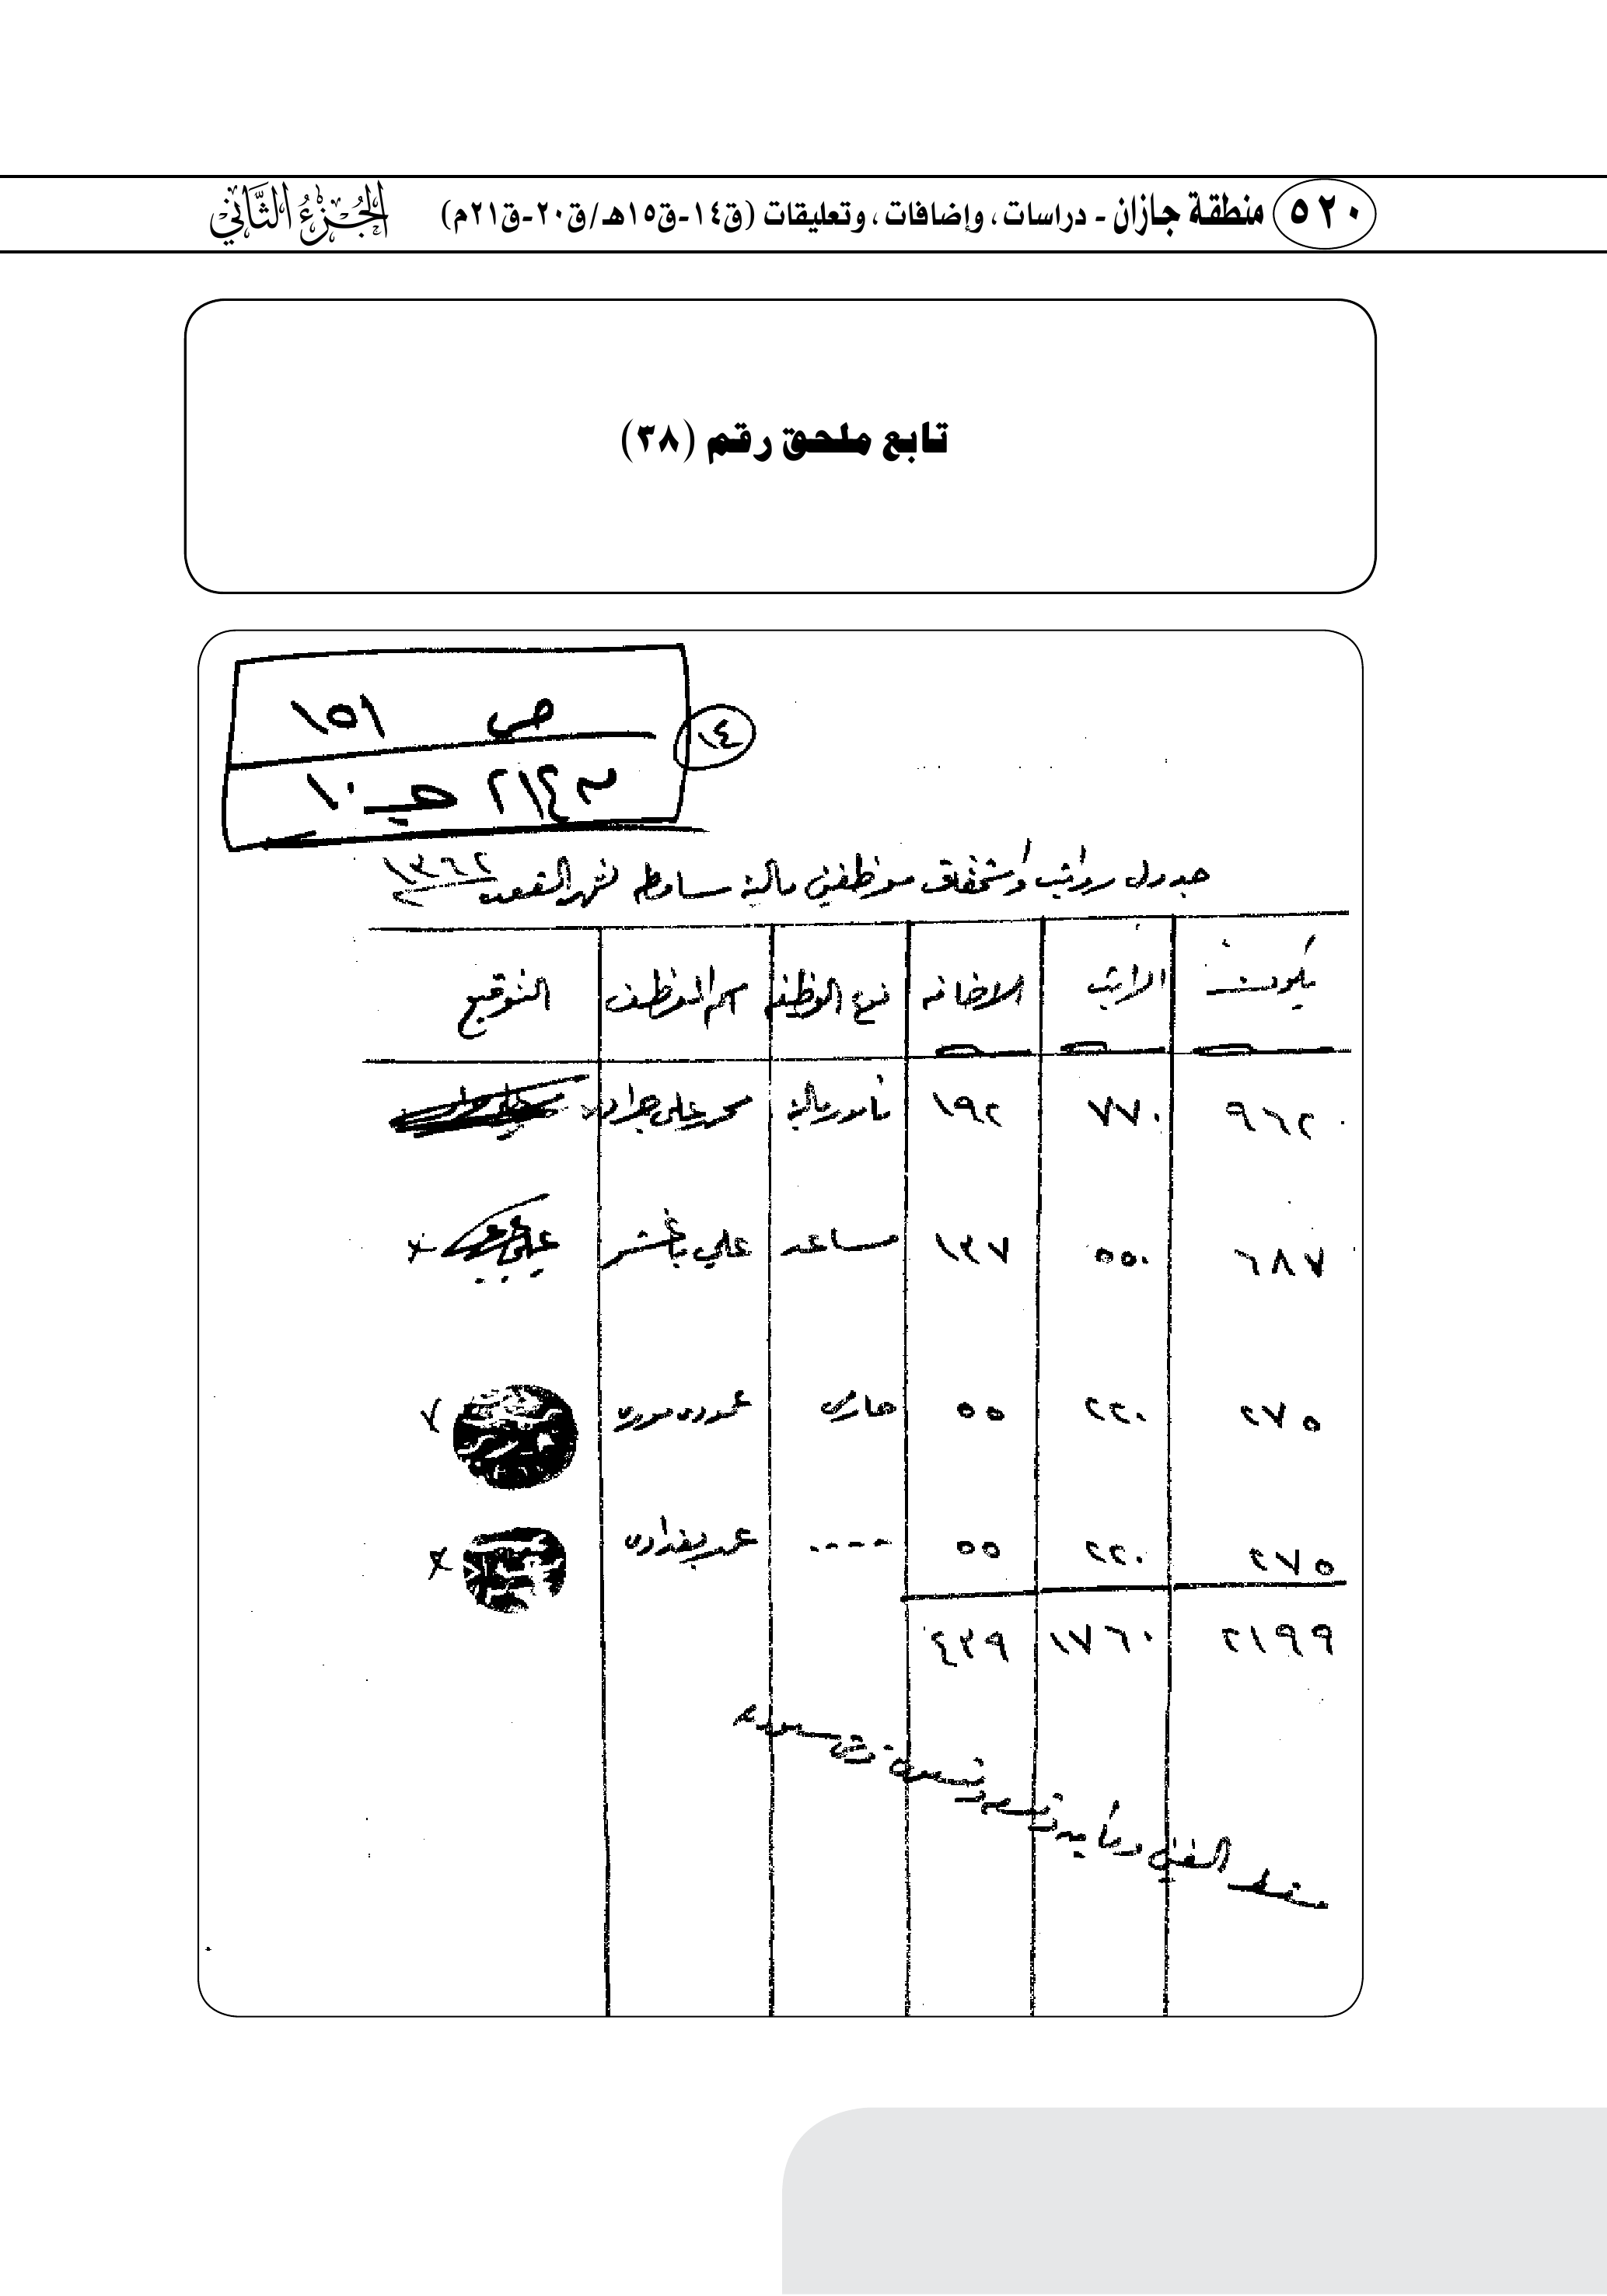 ٥٢٠ منطقة جازان - دراسات، وإضافات، وتعليقات (ق١٤-ق١٥هـ/ق٢٠-ق٢١م) الجزء الثاني
تابع ملحق رقم (٣٨)
ص ١٥١
١٤
٢١٤٢ جـ ١٠
جدول رواتب واستحقاق موظفين مالية سامطه لشهر القعده ١٣٦٢
يكون الراتب الاضافه نوع الوظيفه اسم الموظف التوقيع
٩٦٢ ٧٧٠ ١٩٢ مأمور مالية محمد علي جراده
٦٨٧ ٥٥٠ ١٣٧ مساعد علي باعشر
٢٧٥ ٢٢٠ ٥٥ حارس
٢٧٥ ٢٢٠ ٥٥ ---- عمر بغدادي
٢١٩٩ ١٧٦٠ ٤٣٩
فقط الفين ومأيه وتسعه وتسعون قرش سعوديه